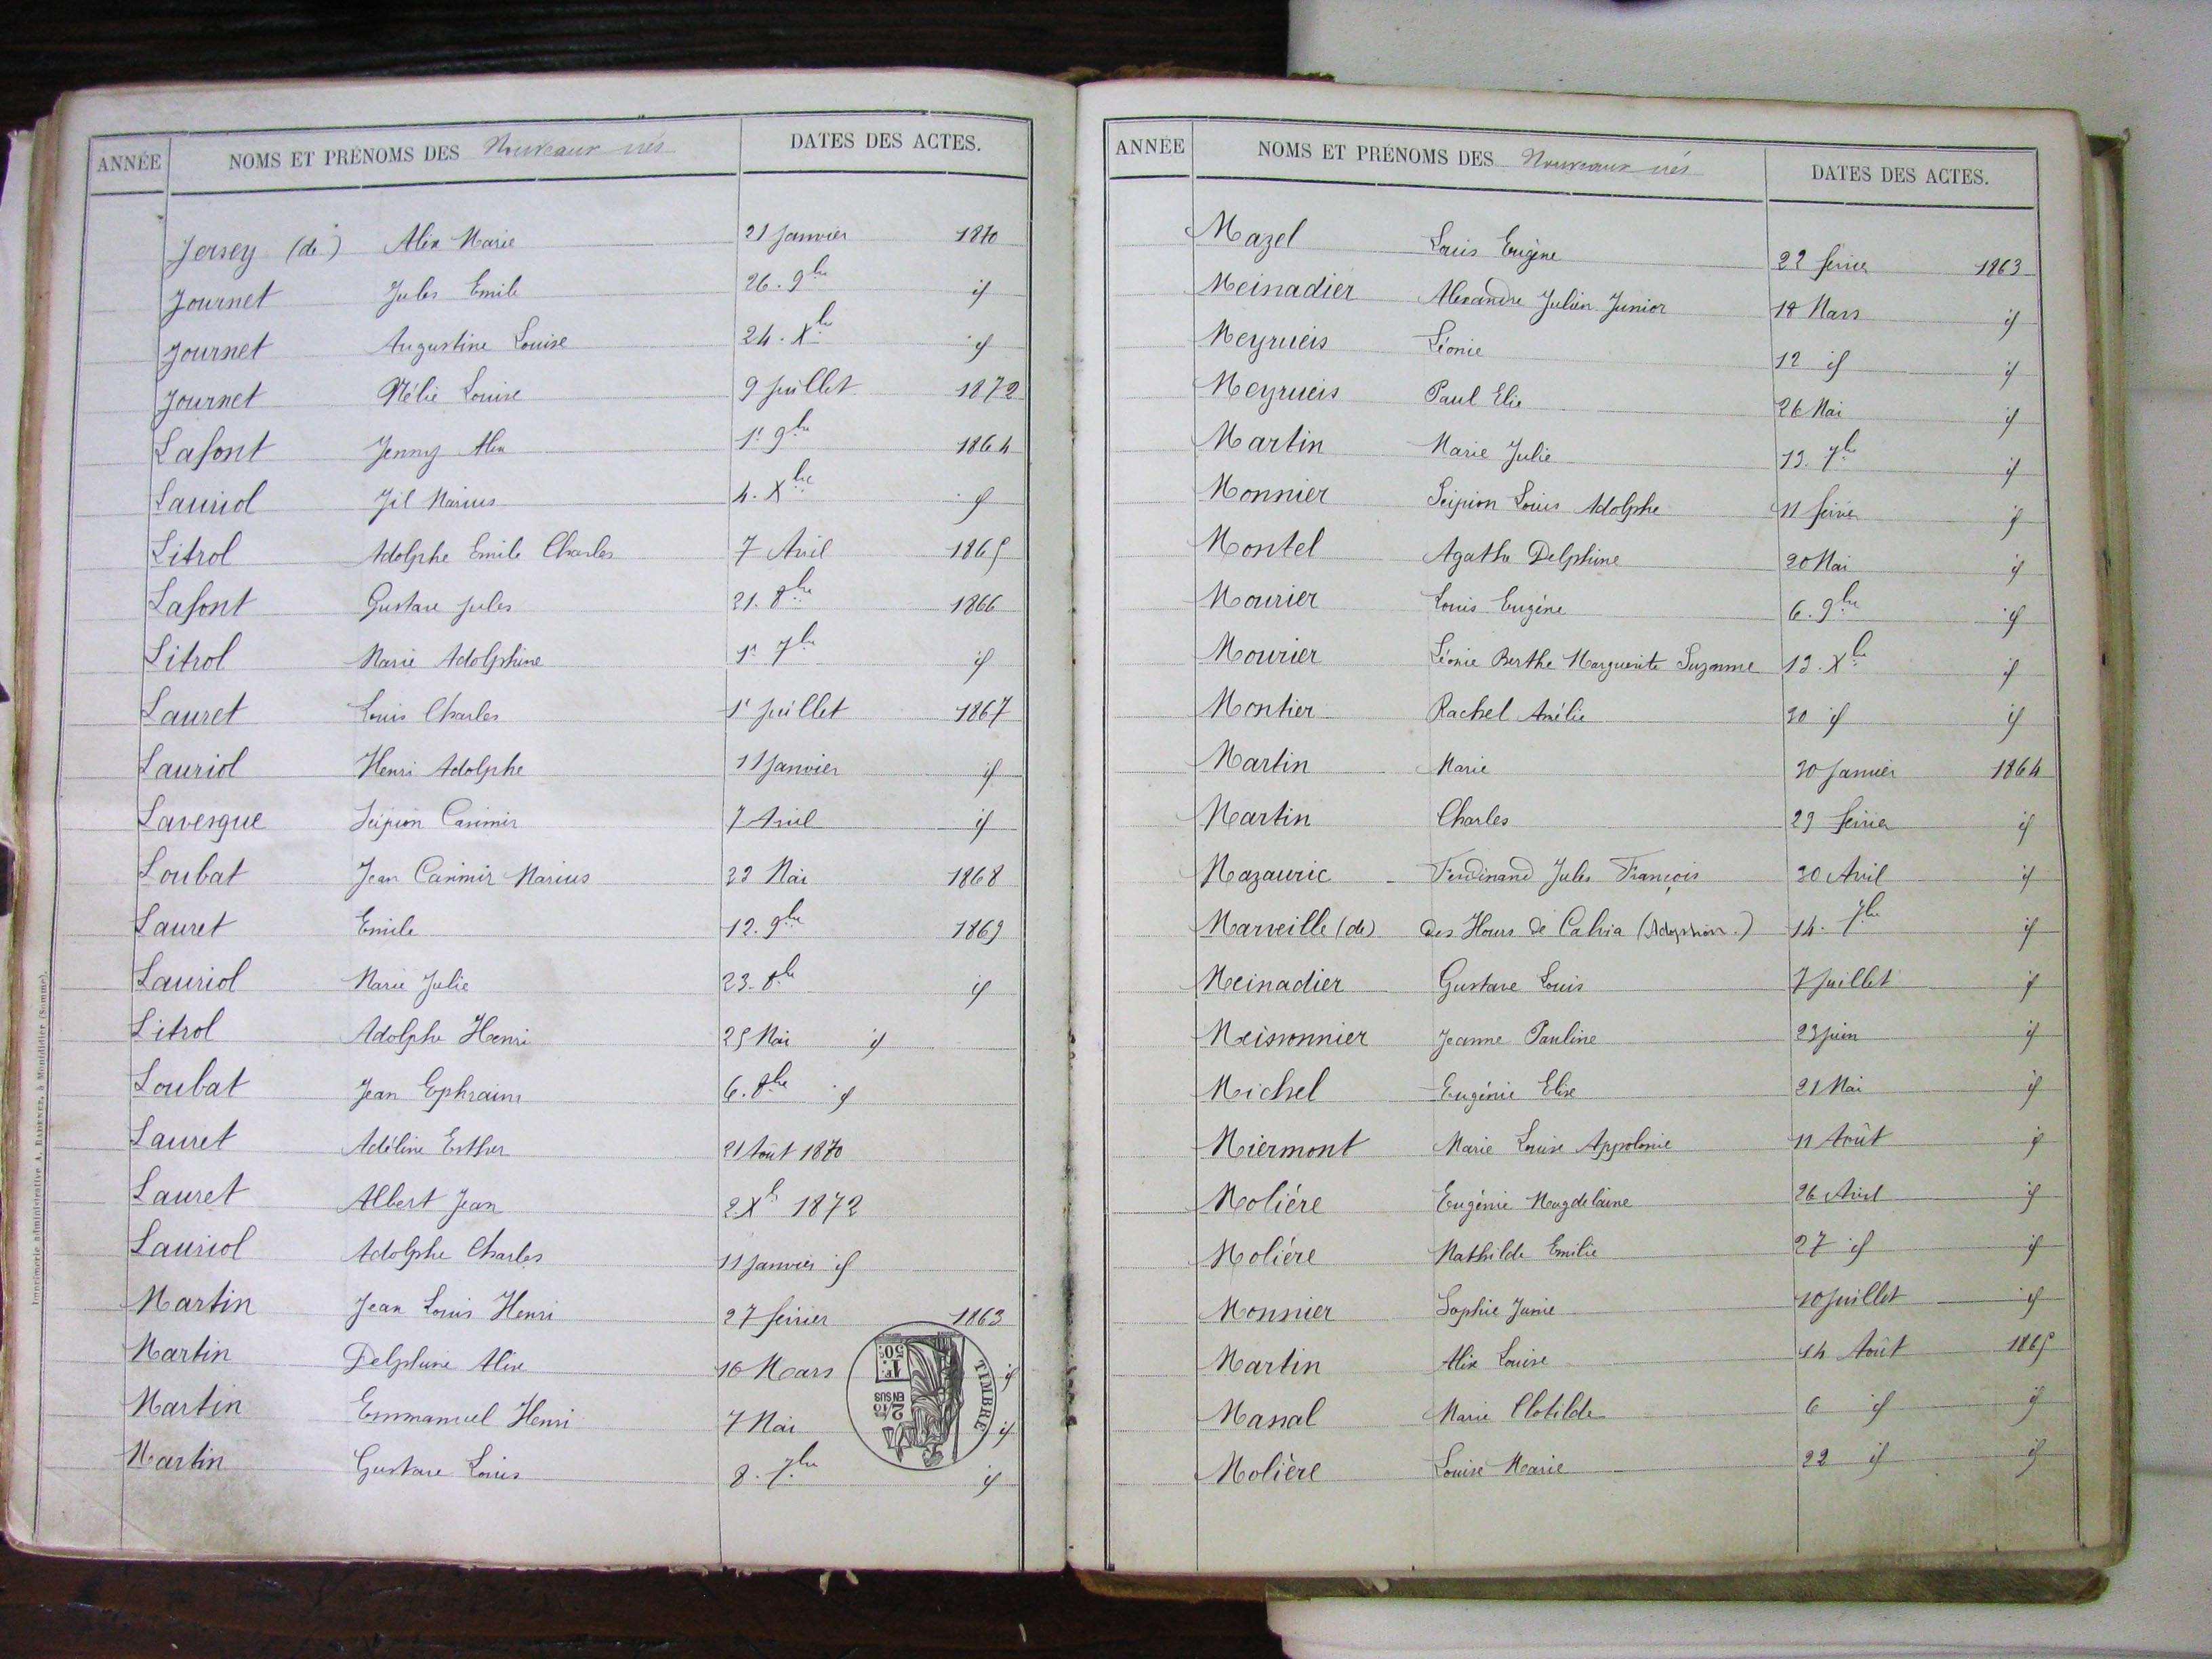 ANNÉE NOMS ET PRÉNOMS DES Nouveaux nés DATES DES ACTES.
Jersey (de) Alix Marie 21 Janvier 1870
Journet Jules Emile 26. 9bre id
Journet Augustine Louise 24. Xbre id
Journet Mélie Louise 9 Juillet 1872
Lafont Jenny Alix 1r 9bre 1864
Lauriol Jil Marius 4. Xbre id
Litrol Adolphe Emile Charles 7 Avril 1865
Lafont Gustave Jules 21. 8bre 1866
Litrol Marie Adolphine 1r 7bre id
Lauret Louis Charles 1r Juillet 1867
Lauriol Henri Adolphe 11 Janvier id
Lavesque Scipion Casimir 7 Avril id
Loubat Jean Casimir Marius 22 Mai 1868
Lauret Emile 12. 9bre 1869
Lauriol Marie Julie 23. 8bre id
Litrol Adolphe Henri 25 Mai id
Loubat Jean Ephraim 6. 8bre id
Lauret Adéline Esther 21 Août 1870
Lauret Albert Jean 2 Xb 1872
Lauriol Adolphe Charles 11 Janvier id
Martin Jean Louis Henri 27 février 1863
Martin Delphine Alix 16 Mars id
Martin Emmanuel Henri 7 Mai id
Martin Gustave Louis 8. 7bre id
TIMBRE
1F. 50c
2/10 EN SUS
Imprimerie administrative A. RADENEZ, à Montdidier (Somme).
ANNÉE NOMS ET PRÉNOMS DES Nouveaux nés DATES DES ACTES.
Mazel Louis Eugène 22 février 1863
Meinadier Alexandre Julien Junior 18 Mars id
Meyrueis Léonie 12 id id
Meyrueis Paul Elie 26 Mai id
Martin Marie Julie 13. 7bre id
Monnier Scipion Louis Adolphe 11 février id
Montel Agathe Delphine 20 Mai id
Mourier Louis Eugène 6. 9bre id
Mourier Léonie Berthe Marguerite Suzanne 13. Xbre id
Montier Rachel Amélie 30 id id
Martin Marie 30 Janvier 1864
Martin Charles 29 février id
Mazauric Ferdinand Jules François 30 Avril id
Marveille (de) des Hours de Calvia (Adoption.) 14. 7bre id
Meinadier Gustave Louis 7 Juillet id
Meissonnier Jeanne Pauline 23 Juin id
Michel Eugénie Elise 21 Mai id
Miermont Marie Louise Appolonie 11 Août id
Molière Eugénie Magdelaine 26 Avril id
Molière Mathilde Emilie 27 id id
Monnier Sophie Junie 10 Juillet id
Martin Alix Louise 14 Août 1865
Massal Marie Clotilde 6 id id
Molière Louise Marie 22 id id